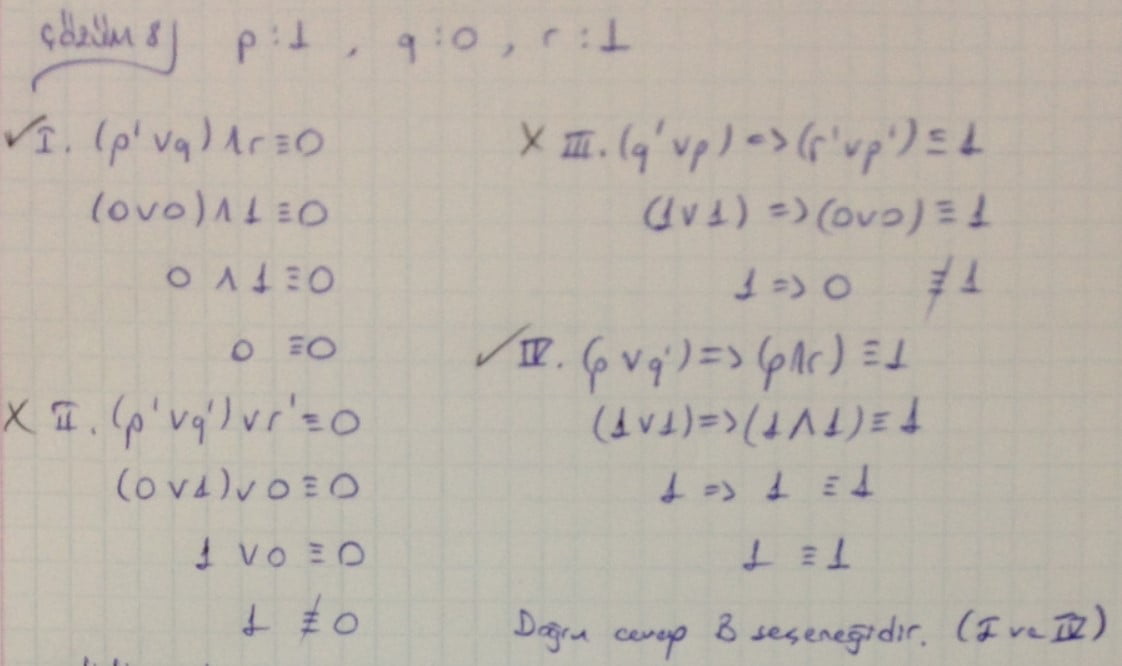 çözüm 8) p:1 , q:0 , r:1
✓ I. (p' ∨ q) ∧ r ≡ 0
(0 ∨ 0) ∧ 1 ≡ 0
0 ∧ 1 ≡ 0
0 ≡ 0
X II. (p' ∨ q') ∨ r' ≡ 0
(0 ∨ 1) ∨ 0 ≡ 0
1 ∨ 0 ≡ 0
1 ≢ 0
X III. (q' ∨ p) => (r' ∨ p') ≡ 1
(1 ∨ 1) => (0 ∨ 0) ≡ 1
1 => 0 ≢ 1
✓ IV. (p ∨ q') => (p ∧ r) ≡ 1
(1 ∨ 1) => (1 ∧ 1) ≡ 1
1 => 1 ≡ 1
1 ≡ 1
Doğru cevap B seçeneğidir. (I ve IV)